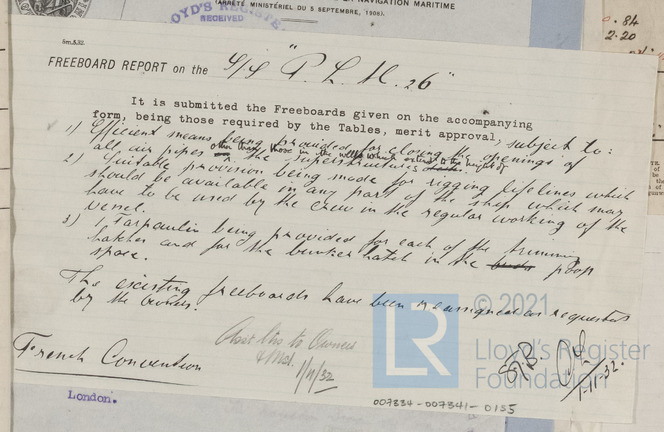 NAVIGATION MARITIME
(ARRÊTÉ MINISTÉRIEL DU 5 SEPTEMBRE, 1908).
LLOYD'S REGISTER
RECEIVED
.84
2.20
FREEBOARD REPORT on the S/S "P. L. M. 26"
It is submitted the Freeboards given on the accompanying
form, being those required by the Tables, merit approval, subject to:
1) Efficient means being provided for closing the openings of
all air pipes other than those in the wells which extend to the height of the superstructure
2) Suitable provision being made for rigging lifelines which
should be available in any part of the ship which may
have to be used by the crew in the regular working of the
vessel.
3) 1 Tarpaulin being provided for each of the trimming
hatches and for the bunker hatch in the poop
space.
The existing freeboards have been reassigned as requested
by the Owners.
French Convention
to Owners
1/11/32
1-11-32.
London.
© 2021
LR
Lloyd's Register
Foundation
007334-007341-0155